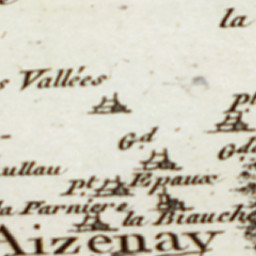 la
s Vallées
pt
Gd
Gds
ullau
pt Epaux
la Parniere
la Biauche
Aizenay